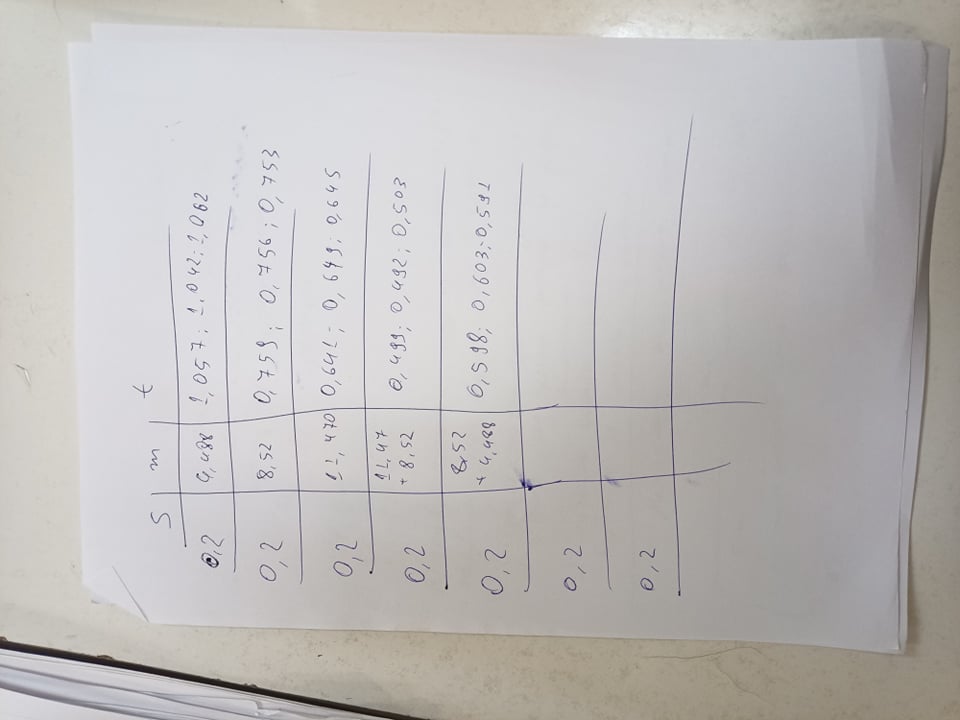 S m t
0,2 4,488 1,057; 1.042; 1,062
0,2 8,52 0,759; 0,756; 0,753
0,2 11,470 0,641; 0,649; 0,645
0,2 11,47 + 8,52 0,499; 0,492; 0,503
0,2 8,52 + 4,488 0,598; 0,603; 0,591
0,2
0,2